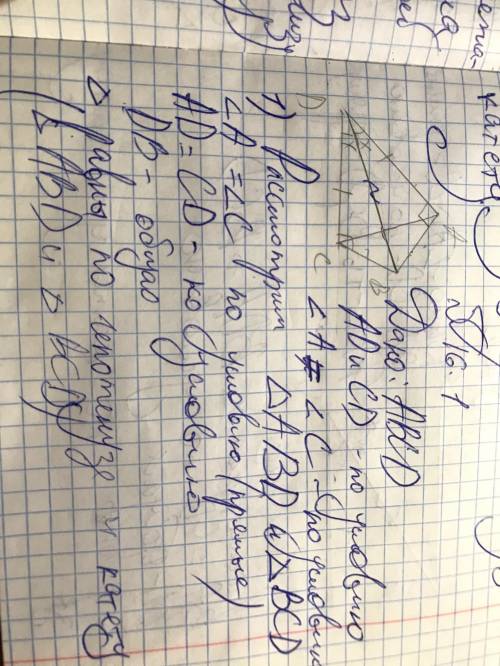 катете
№ 16.1
Дано: ABCD
AD и CD - по условию
∠A = ∠C - по условию
A
B
C
D
1) Рассмотрим △ABD и △BCD
∠A = ∠C по условию (прямые)
AD = CD - по условию
DB - общая
△ равны по гипотенузе и катету
(△ABD и △BCD)